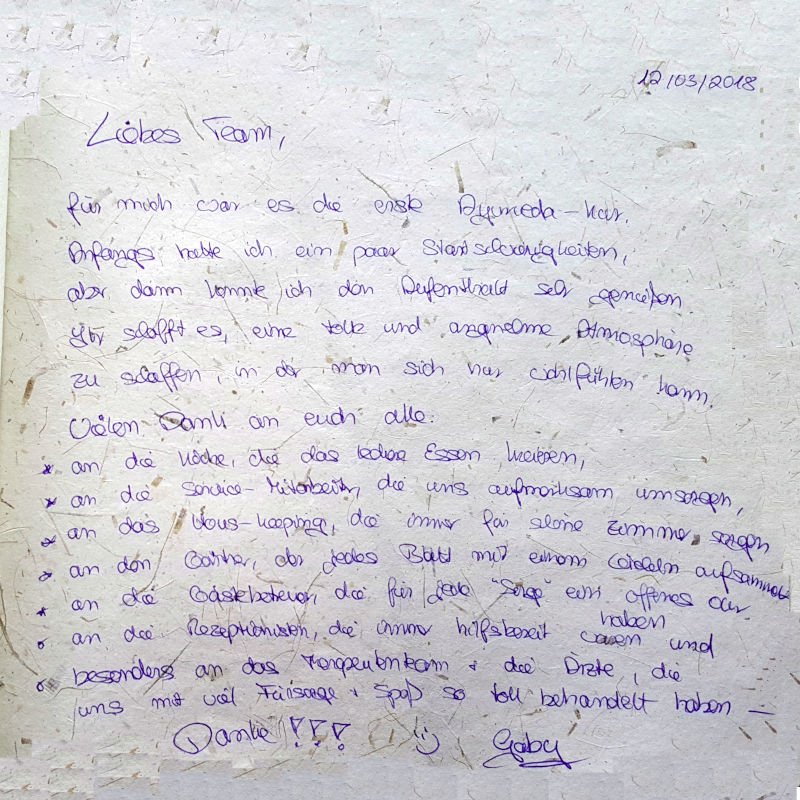 12/03/2018
Liebes Team,
für mich war es die erste Ayurveda-Kur.
Anfangs hatte ich ein paar Startschwierigkeiten,
aber dann konnte ich den Aufenthalt sehr genießen
Ihr schafft es, eine tolle und angenehme Atmosphäre
zu schaffen, in der man sich nur wohlfühlen kann.
Vielen Dank an euch alle:
* an die Köche, die das leckere Essen
* an die Service-Mitarbeiter, die uns aufmerksam umsorgen,
* an das Hous-keeping, die immer für schöne Zimmer sorgen
* an den Gärtner, der jedes Blatt mit einem Lächeln aufsammelt
* an die Gästebetreuer, die für jede "Sorge" ein offenes Ohr
haben
* an die Rezeptionisten, die immer hilfsbereit waren und
* besonders an das Therapeutenteam + die Ärzte, die
uns mit viel Fürsorge + Spaß so toll behandelt haben –
Danke !!! Gaby